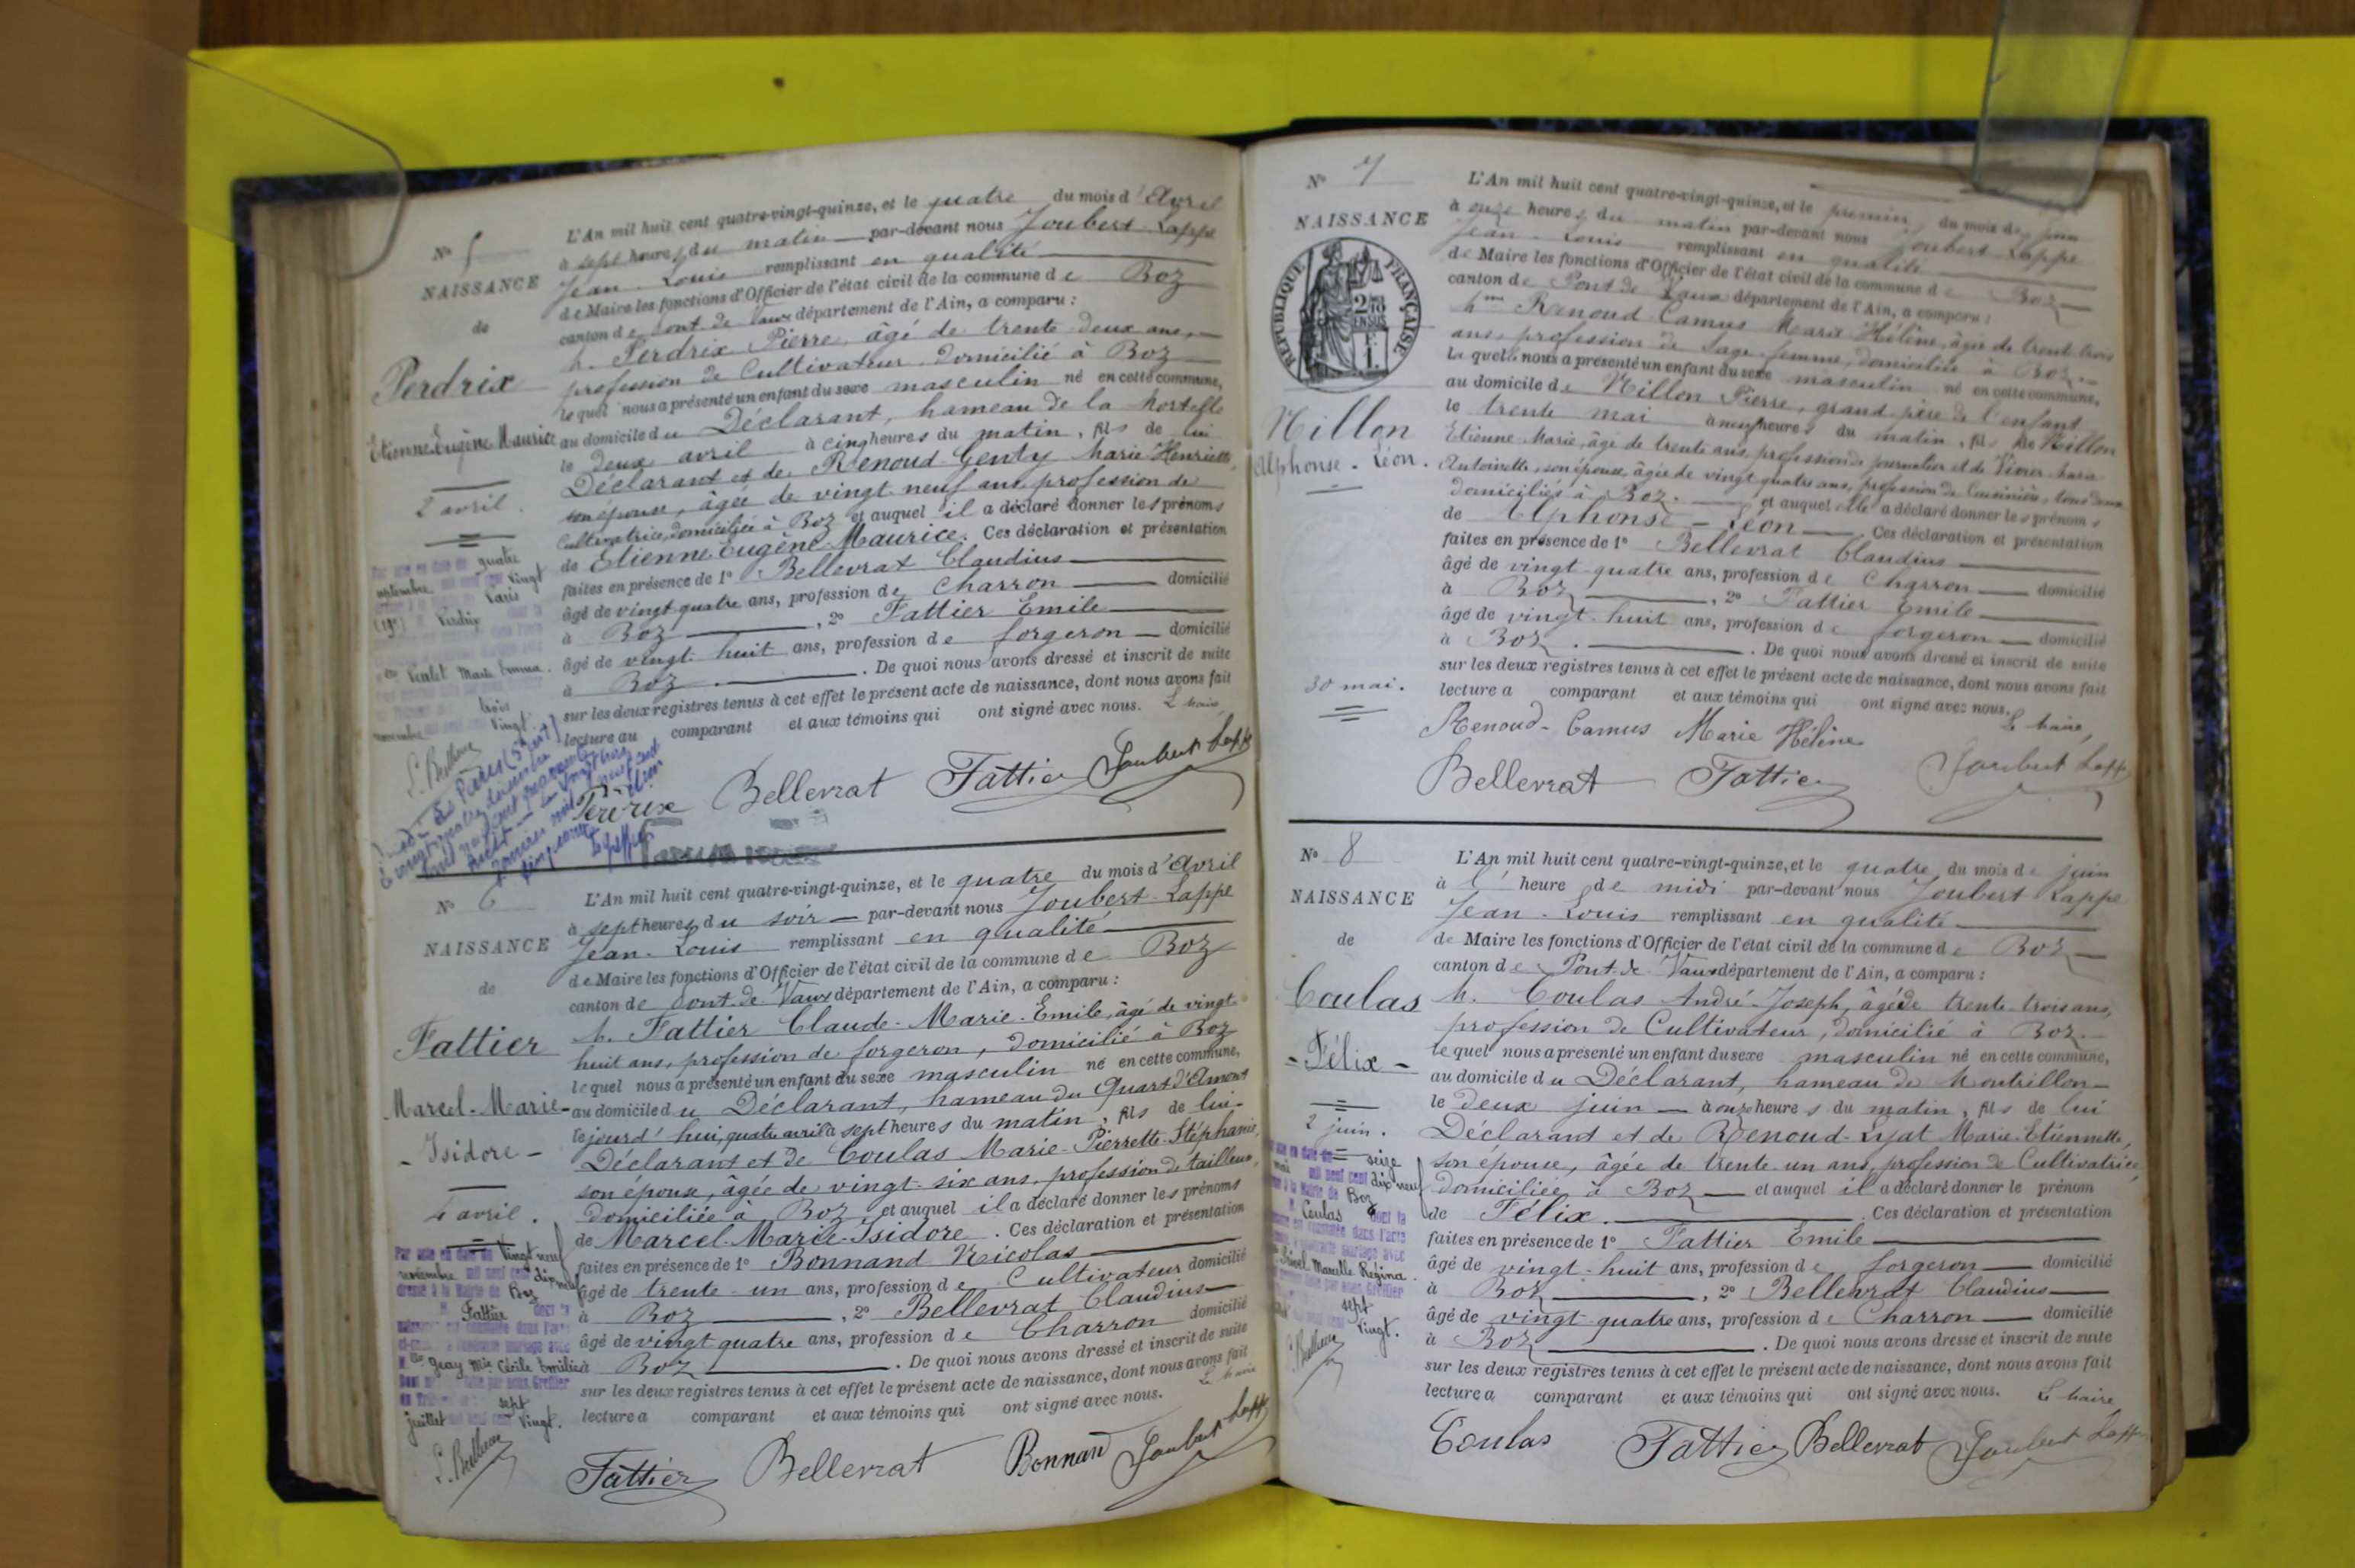 N° 5
NAISSANCE
de
Perdrix
Etienne Eugène Maurice
2 avril.
L'An mil huit cent quatre-vingt-quinze, et le quatre du mois d'Avril
à sept heures du matin par-devant nous Joubert-Lappe
Jean-Louis remplissant en qualité
de Maire les fonctions d'Officier de l'état civil de la commune de Boz
canton de Pont de Vaux département de l'Ain, a comparu :
M. Perdrix Pierre, âgé de trente deux ans,
profession de Cultivateur domicilié à Boz
lequel nous a présenté un enfant du sexe masculin né en cette commune,
au domicile du Déclarant, hameau de la
le deux avril à cinq heures du matin, fils de lui
Déclarant et de Renoud-Genty Marie Henriette,
son épouse, âgée de vingt neuf ans profession de
Cultivatrice, domiciliée à Boz et auquel il a déclaré donner les prénoms
de Etienne Eugène-Maurice. Ces déclaration et présentation
faites en présence de 1° Bellevrat Claudius
âgé de vingt quatre ans, profession de Charron domicilié
à Boz, 2° Fattier Emile
âgé de vingt-huit ans, profession de forgeron domicilié
à Boz. De quoi nous avons dressé et inscrit de suite
sur les deux registres tenus à cet effet le présent acte de naissance, dont nous avons fait
lecture au comparant et aux témoins qui ont signé avec nous. Le Maire,
Bellevrat Fattier Joubert Lappe
quatre
septembre vingt
Paris
(19e) Perdrix
Marie Emma.
trois
novembre vingt.
N° 6
NAISSANCE
de
Fattier
Marcel-Marie-
-Isidore-
4 avril.
L'An mil huit cent quatre-vingt-quinze, et le quatre du mois d'Avril
à sept heures du soir par-devant nous Joubert-Lappe
Jean-Louis remplissant en qualité
de Maire les fonctions d'Officier de l'état civil de la commune de Boz
canton de Pont-de-Vaux département de l'Ain, a comparu :
M. Fattier Claude-Marie-Emile, âgé de vingt-
huit ans, profession de forgeron, domicilié à Boz
lequel nous a présenté un enfant du sexe masculin né en cette commune,
au domicile du Déclarant, hameau du Quart d'Amont
lejourd'hui, quatre avril à sept heures du matin, fils de lui-
Déclarant et de Coulas Marie-Pierrette-Stéphanie,
son épouse, âgée de vingt-six ans, profession de tailleuse,
domiciliée à Boz et auquel il a déclaré donner les prénoms
de Marcel-Marie-Isidore. Ces déclaration et présentation
faites en présence de 1° Bonnand Nicolas
âgé de trente-un ans, profession de Cultivateur domicilié
à Boz, 2° Bellevrat Claudius
âgé de vingt quatre ans, profession de Charron domicilié
à Boz. De quoi nous avons dressé et inscrit de suite
sur les deux registres tenus à cet effet le présent acte de naissance, dont nous avons fait
lecture a comparant et aux témoins qui ont signé avec nous. Le Maire
Fattier Bellevrat Bonnand Joubert Lappe
Par acte en date du Vingt neuf
novembre mil neuf cent dix neuf
dressé à la Mairie de Boz
M. Fattier dont la
M elle Geay Mie Cécile Emilie
sept
juillet vingt.
N° 7
NAISSANCE
RÉPUBLIQUE FRANÇAISE
Millon
Alphonse-Léon.
30 mai.
L'An mil huit cent quatre-vingt-quinze, et le premier du mois de juin
à onze heures du matin par-devant nous Joubert-Lappe
Jean-Louis remplissant en qualité
de Maire les fonctions d'Officier de l'état civil de la commune de Boz
canton de Pont de Vaux département de l'Ain, a comparu :
Mme Renoud-Camus Marie Hélène, âgée de trente trois
ans, profession de sage-femme, domiciliée à Boz.
laquelle nous a présenté un enfant du sexe masculin né en cette commune,
au domicile de Millon Pierre, grand père de l'enfant
le trente mai à neuf heures du matin, fils de Millon
Etienne Marie, âgé de trente ans, profession de journalier et de Marie
Antoinette, son épouse, âgée de vingt quatre ans, profession de Cuisinière, tous deux
domiciliés à Boz. et auquel elle a déclaré donner les prénoms
de Alphonse-Léon. Ces déclaration et présentation
faites en présence de 1° Bellevrat Claudius
âgé de vingt-quatre ans, profession de Charron domicilié
à Boz, 2° Fattier Emile
âgé de vingt-huit ans, profession de forgeron domicilié
à Boz. De quoi nous avons dressé et inscrit de suite
sur les deux registres tenus à cet effet le présent acte de naissance, dont nous avons fait
lecture a comparant et aux témoins qui ont signé avec nous. Le Maire,
Renoud-Camus Marie Hélène
Bellevrat Fattier Joubert Lappe
N° 8
NAISSANCE
de
Coulas
-Félix-
2 juin.
L'An mil huit cent quatre-vingt-quinze, et le quatre du mois de juin
à l' heure de midi par-devant nous Joubert Lappe
Jean-Louis remplissant en qualité
de Maire les fonctions d'Officier de l'état civil de la commune de Boz
canton de Pont-de-Vaux département de l'Ain, a comparu :
M. Coulas André-Joseph, âgé de trente trois ans,
profession de Cultivateur, domicilié à Boz.
lequel nous a présenté un enfant du sexe masculin né en cette commune,
au domicile du Déclarant, hameau de Montrillon
le deux juin à onze heures du matin, fils de lui
Déclarant et de Renoud-Lyat Marie-Etiennette,
son épouse, âgée de trente-un ans, profession de Cultivatrice,
domiciliée à Boz et auquel il a déclaré donner le prénom
de Félix. Ces déclaration et présentation
faites en présence de 1° Fattier Emile
âgé de vingt-huit ans, profession de forgeron domicilié
à Boz, 2° Bellevrat Claudius
âgé de vingt-quatre ans, profession de Charron domicilié
à Boz. De quoi nous avons dressé et inscrit de suite
sur les deux registres tenus à cet effet le présent acte de naissance, dont nous avons fait
lecture a comparant et aux témoins qui ont signé avec nous. Le Maire
Coulas Fattier Bellevrat Joubert Lappe
seize
mai mil neuf cent dix neuf
à la Mairie de Boz
Coulas dont la
Marcelle Régina.
sept
vingt.